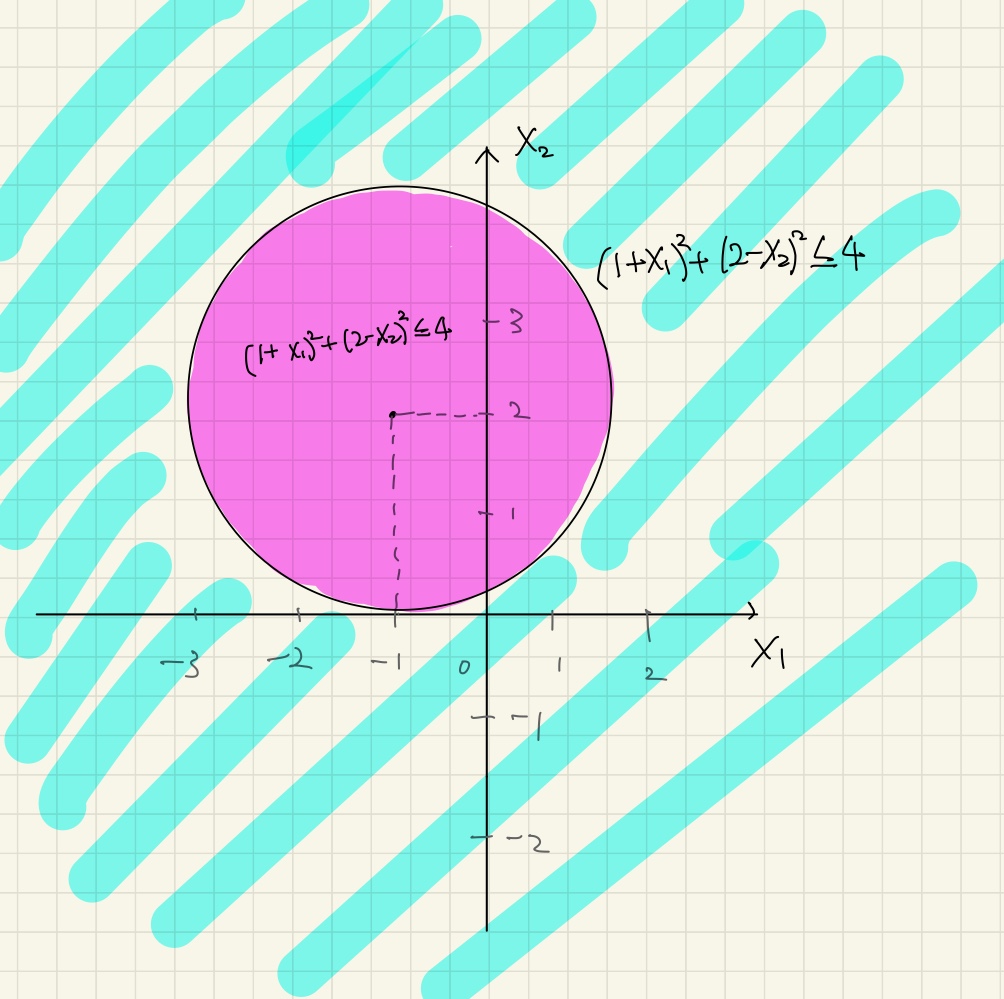 X₂
(1+X₁)²+(2-X₂)²≤4
3
(1+X₁)²+(2-X₂)²≤4
2
1
-3 -2 -1 0 1 2 X₁
-1
-2